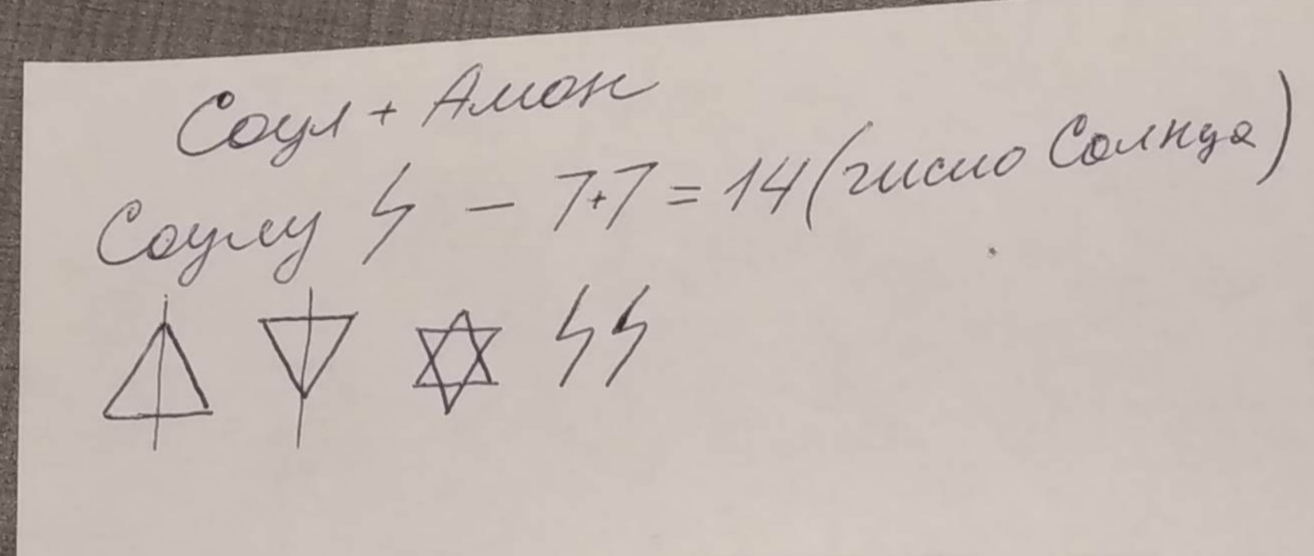 Соул + Амон
Соулу ᛋ - 7+7 = 14 (число Солнца)
ᛋᛋ